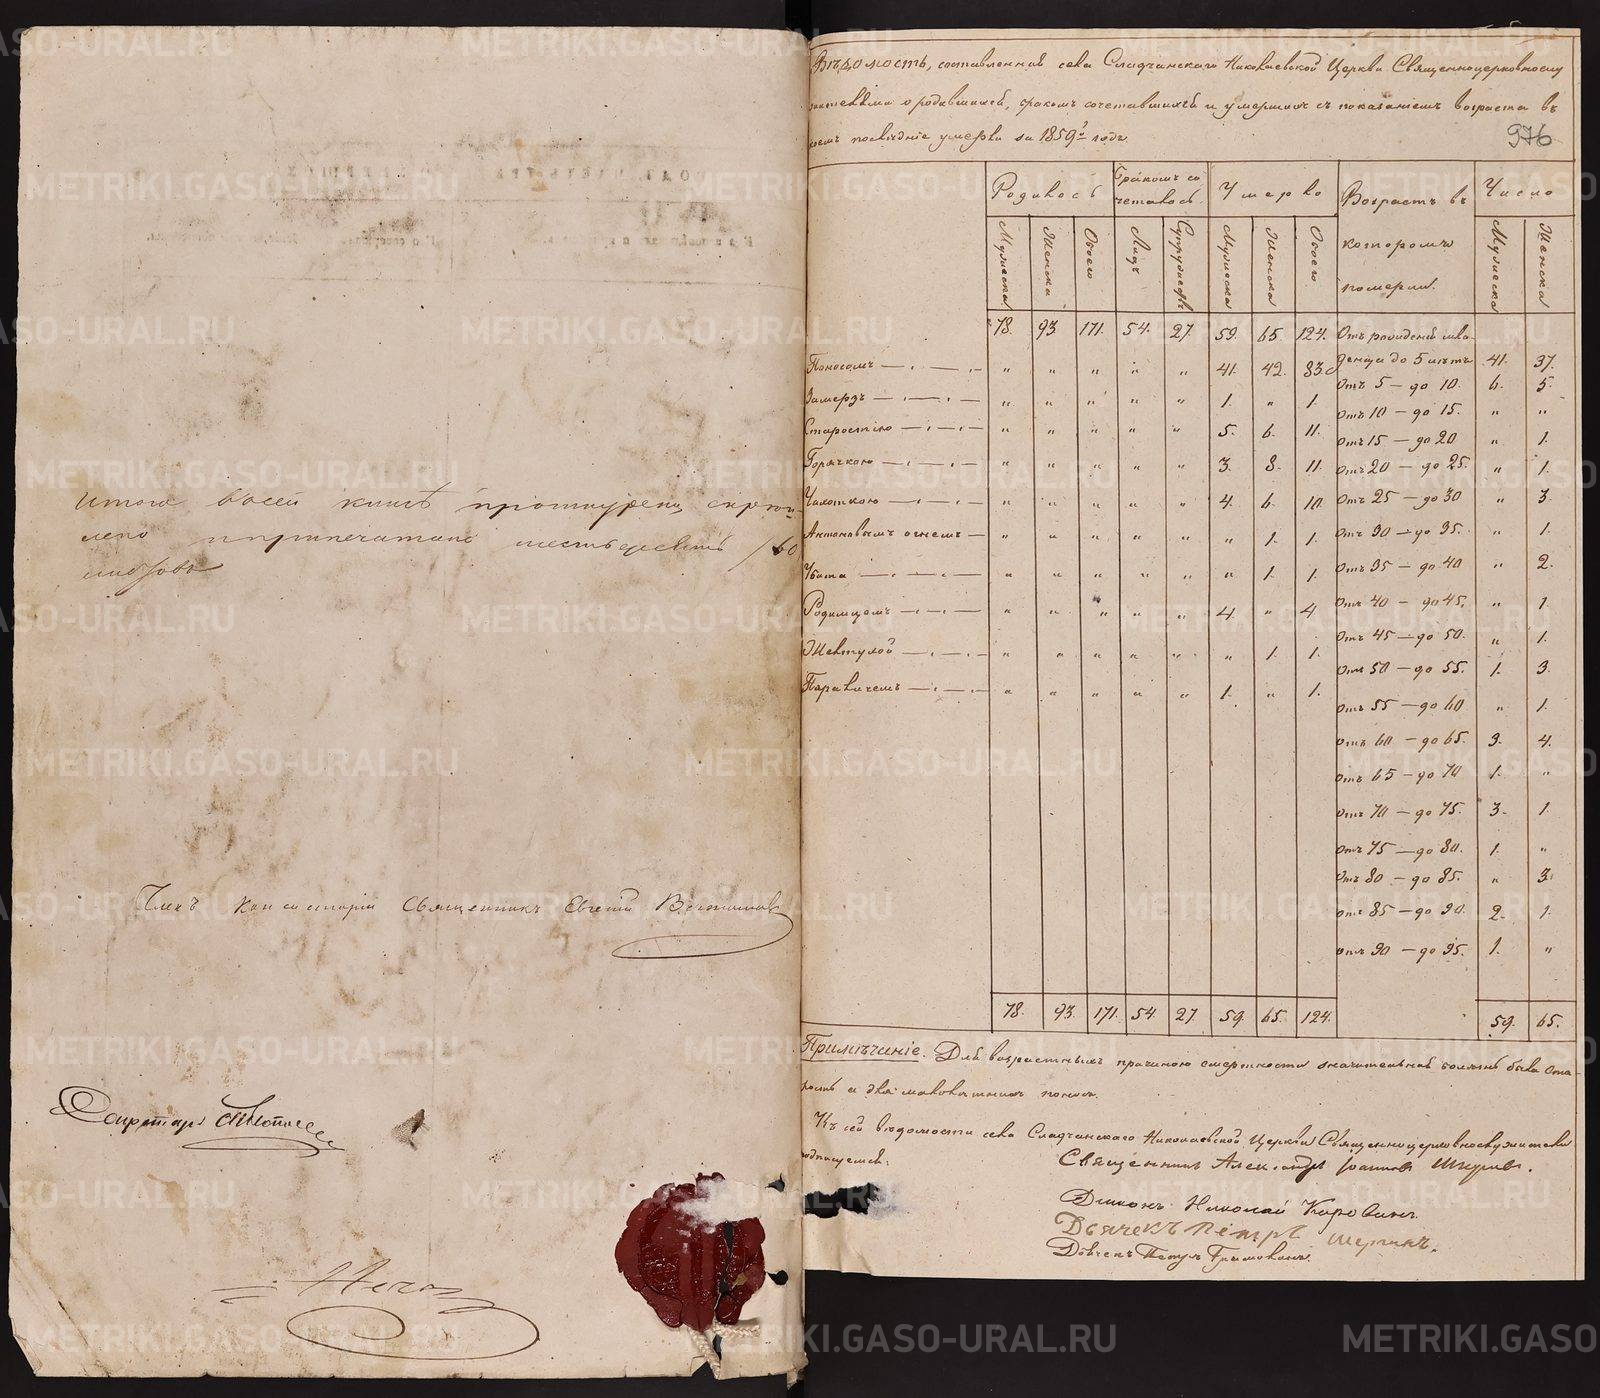 Итого в сей книгѣ прошнурено, скрѣп-
лено и припечатано шестьдесятъ /60
листовъ
Членъ Консисторіи Священникъ Евгеній
Секретарь
976
Вѣдомость, составленная села Сладчанскаго Николаевской Церкви Священноцерковнослу
жителями о родившихся, бракомъ сочетавшихся и умершихъ съ показаніемъ возраста въ
коемъ послѣдніе умерли за 1859й годъ.
Родилось Бракомъ со Умерло Возрастъ въ Число
четалось
Мужеска Женска Обоего Лицъ Супружествъ Мужеска Женска Обоего которомъ Мужеска Женска
померли.
78. 93 171. 54. 27 59. 65. 124. Отъ рожденія мла-
Поносомъ — „ „ „ „ „ 41. 42. 83. денца до 5 лѣтъ 41. 37.
Отъ 5 — до 10. 6. 5.
Замерзъ — „ „ „ „ „ 1. „ 1. Отъ 10 — до 15. „ „
Старостію — „ „ „ „ „ 5. 6. 11. Отъ 15 — до 20 „ 1.
Горячкою — „ „ „ „ „ 3. 8. 11. Отъ 20 — до 25. „ 1.
Чахоткою — „ „ „ „ „ 4. 6. 10. Отъ 25 — до 30 „ 3.
Антоновымъ огнемъ — „ „ „ „ „ „ 1. 1. Отъ 30 — до 35. „ 1.
Убита — „ „ „ „ „ „ 1. 1. Отъ 35 — до 40 „ 2.
Родимцемъ — „ „ „ „ „ 4. „ 4. Отъ 40 — до 45. „ 1.
Отъ 45 — до 50. „ 1.
Желтухой — „ „ „ „ „ „ 1. 1.
Отъ 50 — до 55. 1. 3.
Параличемъ — „ „ „ „ „ 1. „ 1.
Отъ 55 — до 60 „ 1.
Отъ 60 — до 65. 3. 4.
Отъ 65 — до 70 1. „
Отъ 70 — до 75. 3. 1.
Отъ 75 — до 80. 1. „
Отъ 80 — до 85. „ 3.
Отъ 85 — до 90. 2. 1.
Отъ 90 — до 95. 1. „
78. 93. 171. 54. 27. 59. 65. 124. 59. 65.
Примѣчаніе. Для возрастныхъ причиною смертности значительная болѣзнь была ста-
рость а для малолѣтнихъ поносъ.
Къ сей вѣдомости села Сладчанскаго Николаевской Церкви Священноцерковнослужители
подписуемся:
Священникъ Александръ Іоанновъ
Діаконъ Николай
Дьячекъ Петръ
Дьячекъ Петръ
METRIKI.GASO-URAL.RU